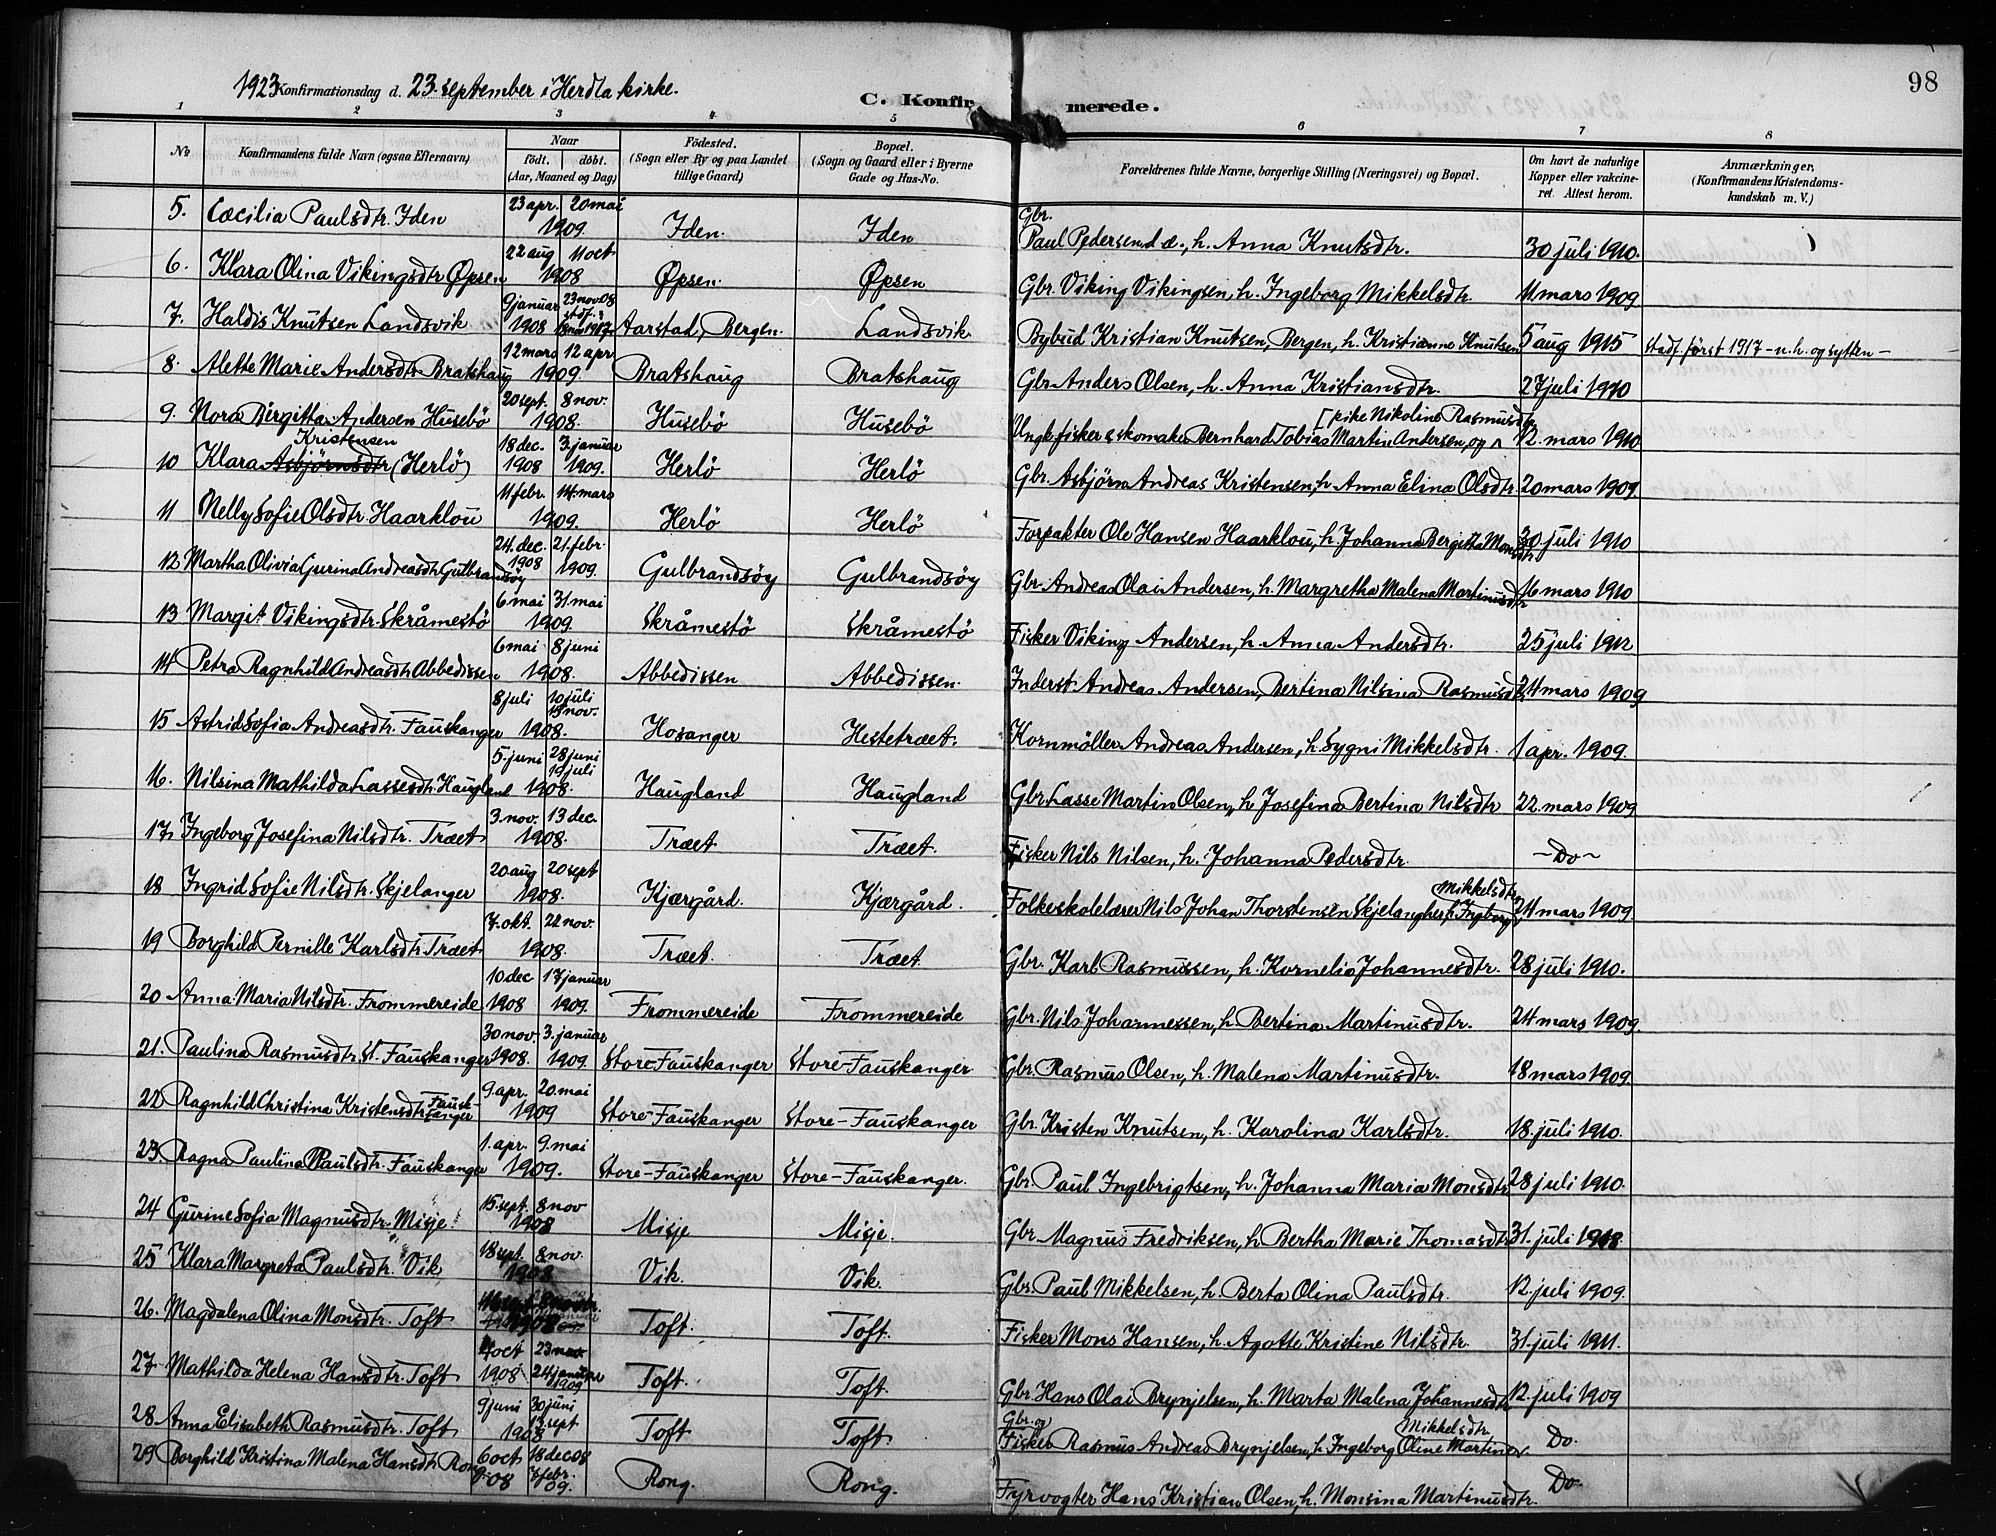 98
1923 Konfirmationsdag d. 23. september i Herdla kirke.
C. Konfirmerede.
1 2 3 4 5 6 7 8
No. | Konfirmandens fulde Navn (ogsaa Efternavn) | Naar födt. döbt. (Aar, Maaned og Dag) | Födested. (Sogn eller By og paa Landet tillige Gaard) | Bopæl. (Sogn og Gaard eller i Byerne Gade og Hus-No. | Forældrenes fulde Navne, borgerlige Stilling (Næringsvei) og Bopæl. | Om havt de naturlige Kopper eller vakcineret. Attest herom. | Anmærkninger, (Konfirmandens Kristendomskundskab m. V.)
5. Cæcilia Paulsdtr. Iden | 23 apr. 20 mai 1909. | Iden. | Iden | Gbr. Paul Pedersen d. æ., h. Anna Knutsdtr. | 30 juli 1910.
6. Klara Olina Vikingsdtr Øpsen | 22 aug 11 oct 1908 | Øpsen. | Øpsen | Gbr. Viking Vikingsen, h. Ingeborg Mikkelsdtr. | 11 mars 1909
7. Haldis Knutsen Landsvik | 9 januar 1908 23 nov. 08 stadf. 1917 | Aarstad, Bergen. | Landsvik | Bybud Kristian Knutsen, Bergen, h. Kristianne Knutsen | 5 aug 1915 | stadf. først 1917 – n. h. og sytten –
8. Alette Marie Andersdtr Bratshaug | 12 mars 12 apr 1909. | Bratshaug | Bratshaug | Gbr. Anders Olsen, h. Anna Kristiansdtr. | 27 juli 1910
9. Nora Bergitta Andersen Husebö | 20 sept. 8 nov. 1908. | Husebö | Husebö | Ungk. fisker & skomaker Bernhard Tobias Martin Andersen, og [pike Nikoline Rasmusdtr | 12. mars 1910
10 Klara Asbjörnsdtr Kristensen (Herlö) | 18 dec. 1908 3. januar 1909. | Herlö | Herlö | Gbr. Asbjörn Andreas Kristensen, h. Anna Elina Olsdtr. | 20 mars 1909
11 Nelly Sofie Olsdtr. Haarklou | 11 febr. 14. mars 1909. | Herlö | Herlö | Forpakter Ole Hansen Haarklou, h. Johanna Bergitta Monsdtr | 30. juli 1910
12 Martha Olivia Gurina Andreasdtr Gulbrandsöy | 24. dec. 1908 21. febr. 1909. | Gulbrandsöy | Gulbrandsöy | Gbr. Andreas Olai Andersen, h. Margretha Malena Martinusdtr | 16 mars 1910
13 Margit Vikingsdtr. Skråmestö | 6 mai 31 mai 1909. | Skråmestö | Skråmestö | Fisker Viking Andersen, h. Anna Andersdtr. | 25 juli 1912
14 Petra Ragnhild Andreasdtr Abbedissen | 6 mai 8 juni 1908. | Abbedissen | Abbedissen. | Inderst. Andreas Andersen, Bertina Nilsina Rasmusdtr | 24 mars 1909
15 Astrid Sofia Andreasdtr. Fauskanger | 8 juli 10 juli 15 nov. 1908. | Hosanger | Hestetræet. | Kornmöller Andreas Andersen, h. Sygni Mikkelsdtr. | 1 apr. 1909.
16. Nilsina Mathilda Lassesdtr Haugland | 5. juni 28 juni 19 juli 1908. | Haugland | Haugland | Gbr. Lasse Martin Olsen, h. Josefina Bertina Nilsdtr | 22. mars 1909
17. Ingeborg Josefina Nilsdtr. Træet | 3. nov. 13 dec. 1908. | Træet | Træet. | Fisker Nils Nilsen, h. Johanna Pedersdtr. | – Do –
18 Ingrid Sofie Nilsdtr. Skjelanger | 20 aug 20 sept 1908. | Kjærgård. | Kjærgård. | Folkeskolelærer Nils Johan Thorstensen Skjelanger, h. Ingeborg Mikkelsdtr | 24 mars 1909
19 Borghild Pernille Karlsdtr Træet | 7. okt. 22 nov. 1908. | Træet. | Træet. | Gbr. Karl Rasmussen, h. Kornelia Johannesdtr. | 28 juli 1910.
20 Anna Maria Nilsdtr. Frommereide | 10 dec 1908 17 januar 1909. | Frommereide | Frommereide | Gbr. Nils Johannessen, h. Bertina Martinusdtr. | 24 mars 1909.
21. Paulina Rasmusdtr. St. Fauskanger | 30 nov. 1908. 3. januar 1909. | Store Fauskanger | Store-Fauskanger | Gbr. Rasmus Olsen, h. Malena Martinusdtr. | 18 mars 1909.
22 Ragnhild Christina Kristensdtr. Fauskanger | 9. apr. 20. mai 1909 | Store-Fauskanger | Store-Fauskanger | Gbr. Kristen Knutsen, h. Karolina Karlsdtr. | 18. juli 1910.
23. Ragna Paulina Paulsdtr. Fauskanger | 1. apr. 9. mai 1909. | Store-Fauskanger | Store-Fauskanger. | Gbr. Paul Ingebrigtsen, h. Johanna Maria Monsdtr | 28 juli 1910.
24 Gurine Sofia Magnusdtr. Misje | 15. sept. 8 nov 1908 | Misje | Misje. | Gbr. Magnus Fredriksen, h Bertha Marie Thomasdtr | 31. juli
25 Klara Margreta Paulsdtr. Vik | 18 sept. 8 nov. 1908 | Vik. | Vik. | Gbr. Paul Mikkelsen, h. Berta Olina Paulsdtr. | 12. juli 1909.
26. Magdalena Olina Monsdtr. Toft | 1908 | Toft. | Toft. | Fisker Mons Hansen, h. Agotte Kristine Nilsdtr. | 31. juli 1911.
27 Mathilda Helena Hansdtr. Toft | oct 1908 23 24 januar 1909 | Toft. | Toft. | Gbr. Hans Olai Brynjelsen, h. Marta Malena Johannesdtr | 12. juli 1909
28. Anna Elisabeth Rasmusdtr. Toft | 9 juni 30 juni 13 sept 1908 | Toft | Toft | Gbr. og Fisker Rasmus Andreas Brynjelsen, h Ingeborg Oline Martine Mikkelsdtr. | Do.
29 Borghild Kristina Malena Hansdtr Rong | 6 oct 08 18 dec 08 7 febr. 09. | Rong. | Rong. | Fyrvogter Hans Kristian Olsen, h. Monsina Martinusdtr. | Do